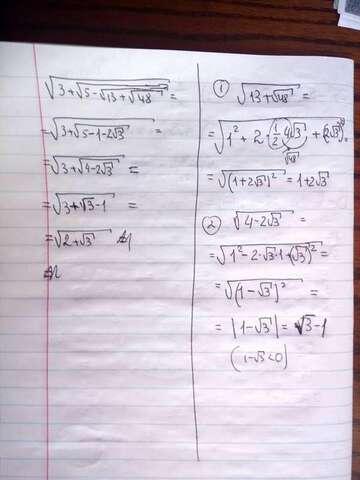 √(3+√(5-√(13+√48))) =
= √(3+√(5-1-2√3)) =
= √(3+√(4-2√3)) =
= √(3+√3-1) =
= √(2+√3)
① √(13+√48) =
= √(1² + 2 · 1/2 · 4√3 + (2√3)²) =
√48
= √((1+2√3)²) = 1+2√3
② √(4-2√3) =
= √(1²-2·√3·1+(√3)²) =
= √((1-√3)²) =
= |1-√3| = √3-1
(1-√3<0)